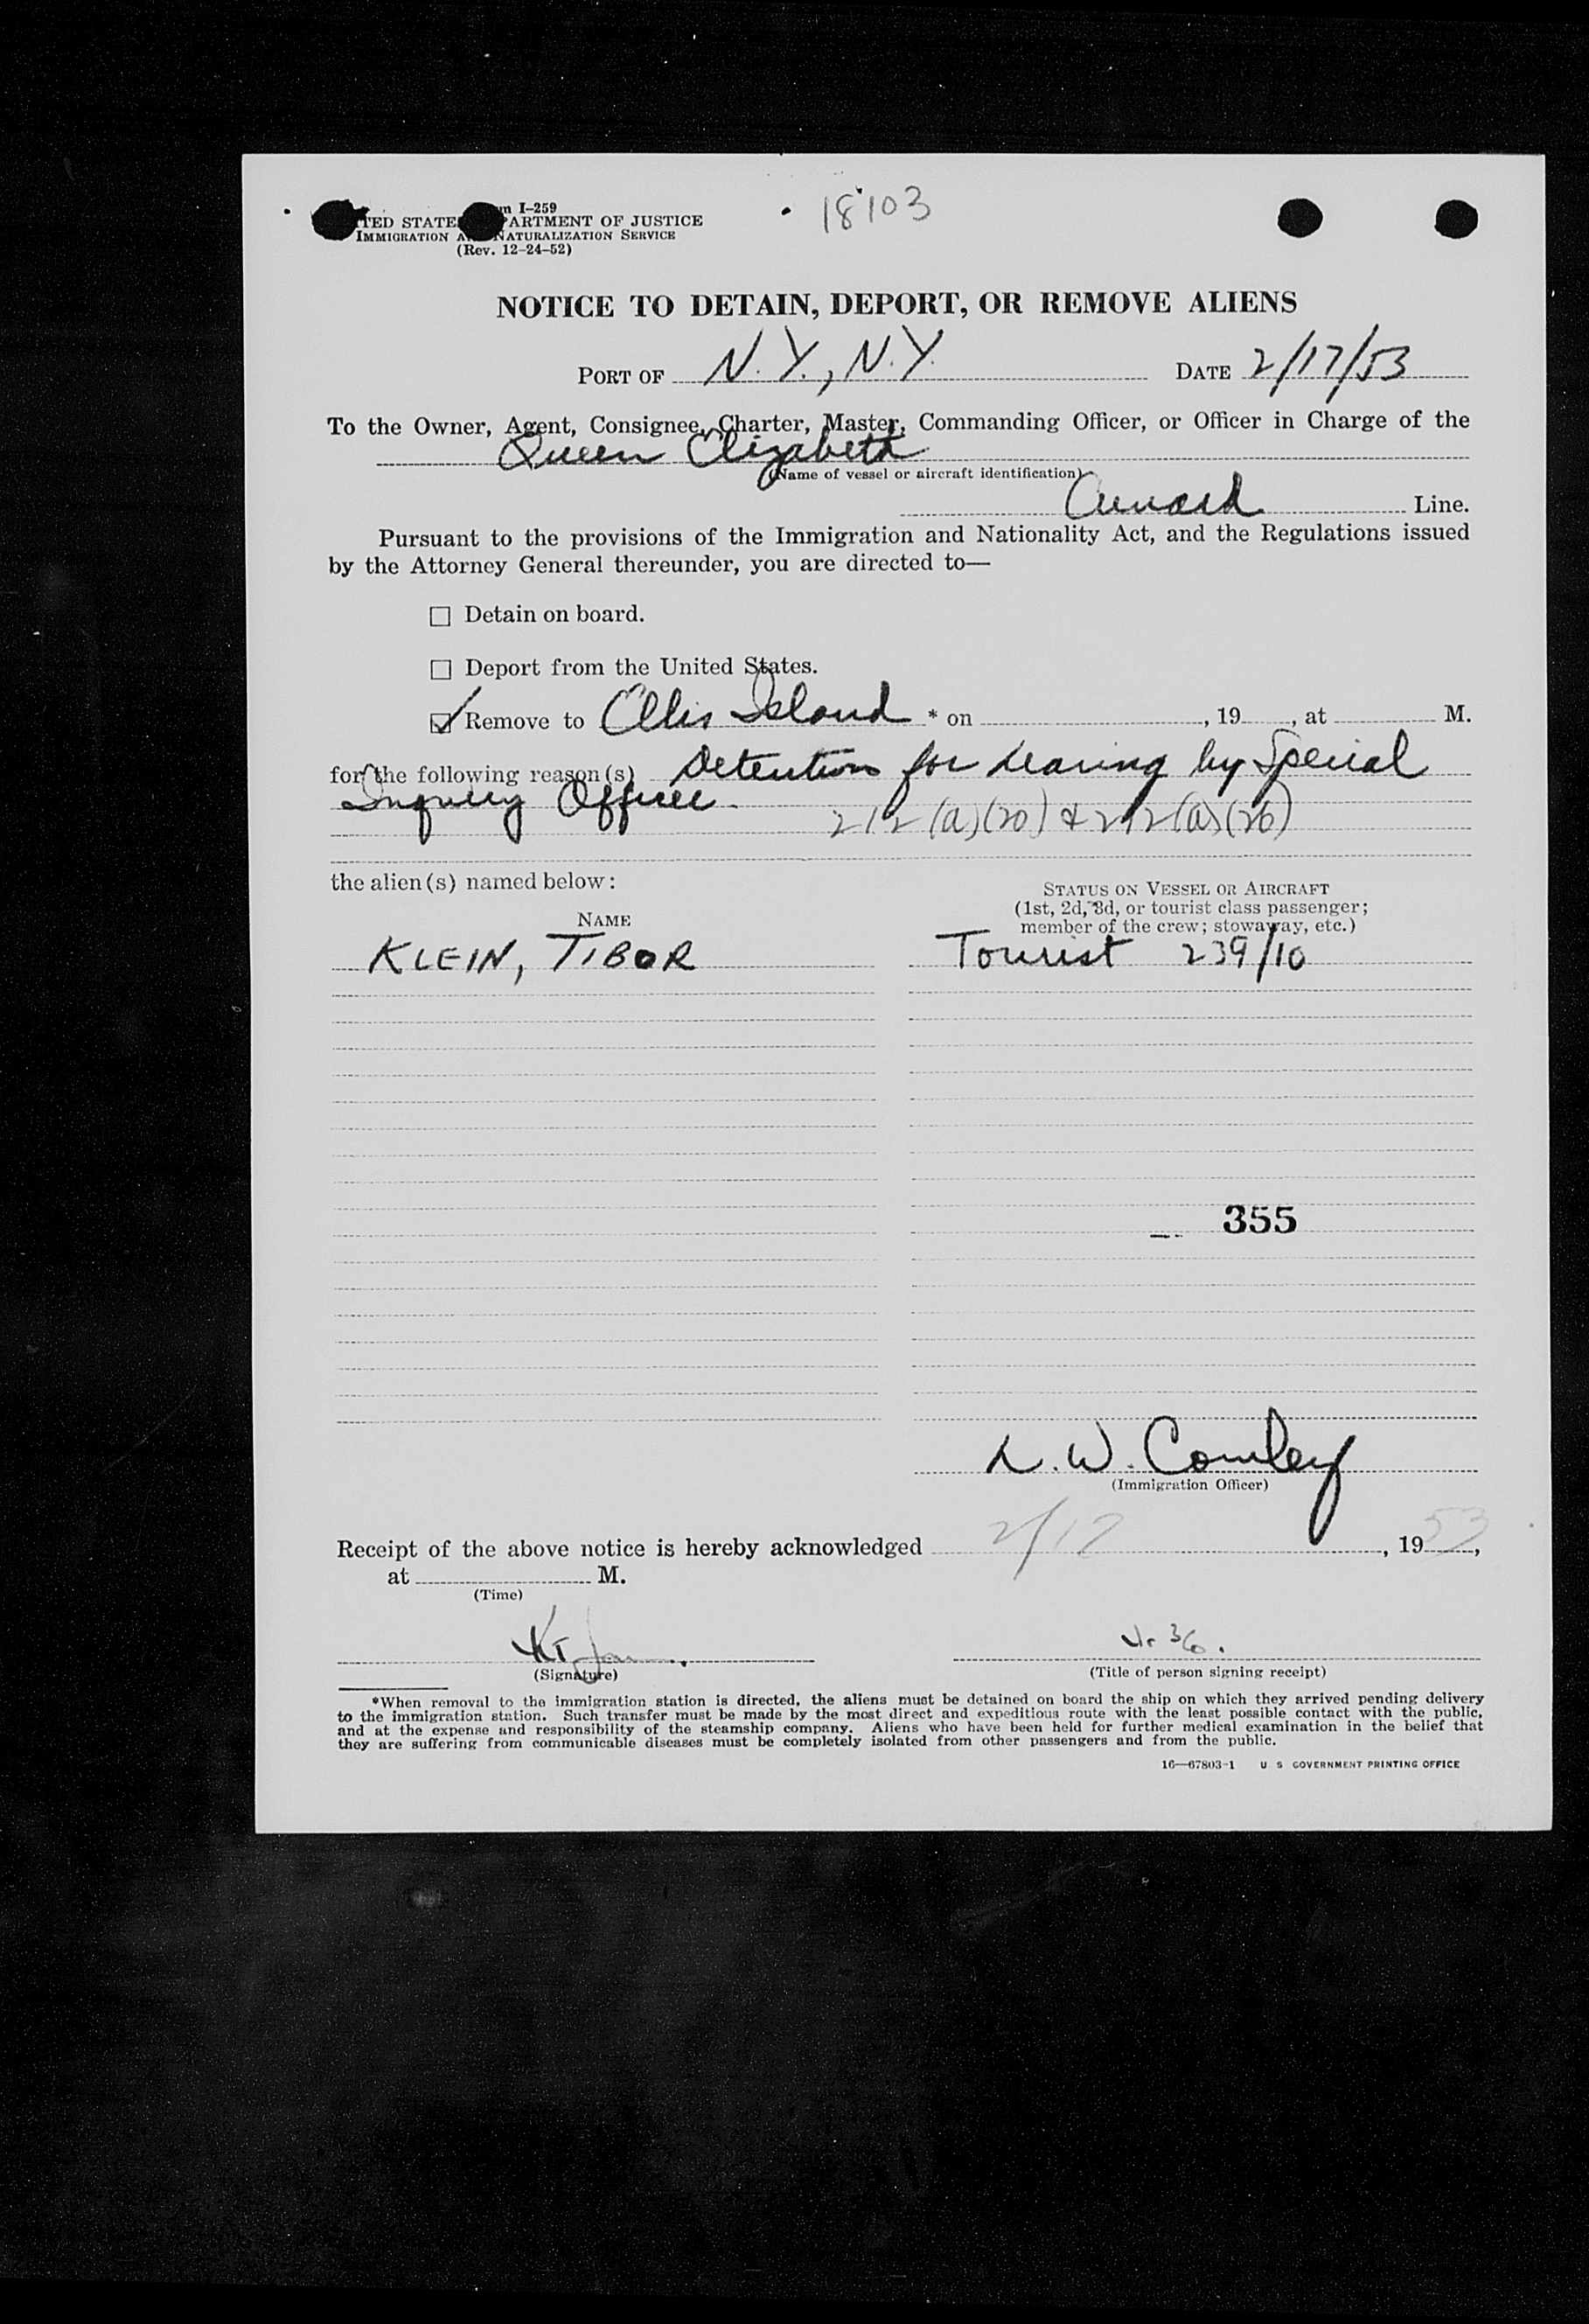 18103
m I-259
TED STATE PARTMENT OF JUSTICE
IMMIGRATION A NATURALIZATION SERVICE
(Rev. 12-24-52)
NOTICE TO DETAIN, DEPORT, OR REMOVE ALIENS
PORT OF N.Y., N.Y. DATE 2/17/53
To the Owner, Agent, Consignee, Charter, Master, Commanding Officer, or Officer in Charge of the
Queen Elizabeth
(Name of vessel or aircraft identification)
Cunard Line.
Pursuant to the provisions of the Immigration and Nationality Act, and the Regulations issued
by the Attorney General thereunder, you are directed to—
☐ Detain on board.
☐ Deport from the United States.
☑ Remove to Ellis Island * on , 19 , at M.
for the following reason(s) Detention for hearing by Special
Inquiry Officer.
212 (a)(20) & 212(a)(26)
the alien(s) named below:
STATUS ON VESSEL OR AIRCRAFT
(1st, 2d, 3d, or tourist class passenger;
member of the crew; stowaway, etc.)
NAME
KLEIN, TIBOR Tourist 239/10
355
L. W. Comley
(Immigration Officer)
Receipt of the above notice is hereby acknowledged 2/17 , 1953,
at M.
(Time)
(Signature) (Title of person signing receipt)
*When removal to the immigration station is directed, the aliens must be detained on board the ship on which they arrived pending delivery
to the immigration station. Such transfer must be made by the most direct and expeditious route with the least possible contact with the public,
and at the expense and responsibility of the steamship company. Aliens who have been held for further medical examination in the belief that
they are suffering from communicable diseases must be completely isolated from other passengers and from the public.
16—67803-1 U S GOVERNMENT PRINTING OFFICE